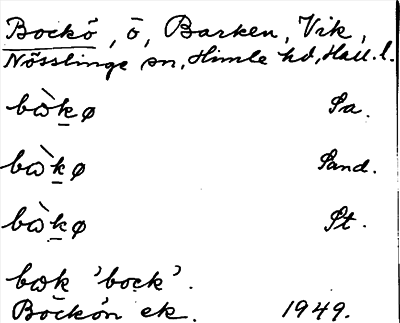 Bockö, ö, Barken, Vik,
Nösslinge sn, Himle hd, Hall. l.
bɷ̀kø Sa.
bɷ̀kø Sand.
bɷ̀kø St.
bɷk 'bock'.
Bockön ek. 1949.